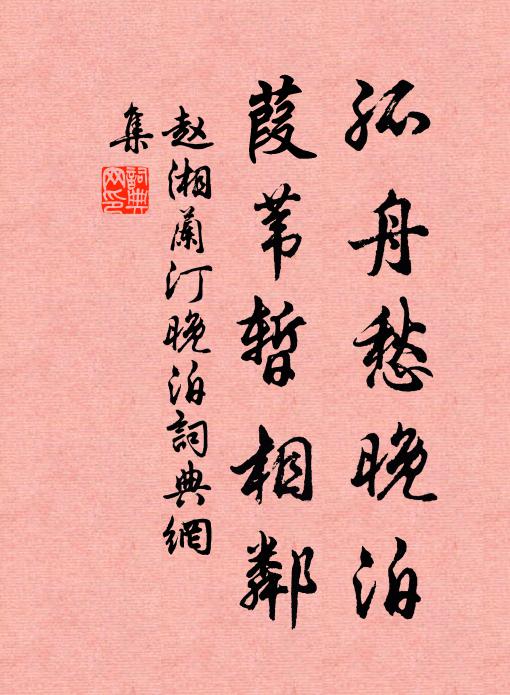 孤舟愁晚泊
葭苇暫相鄰
赵湘蘭汀晚泊詞典網
集
詞典
网印